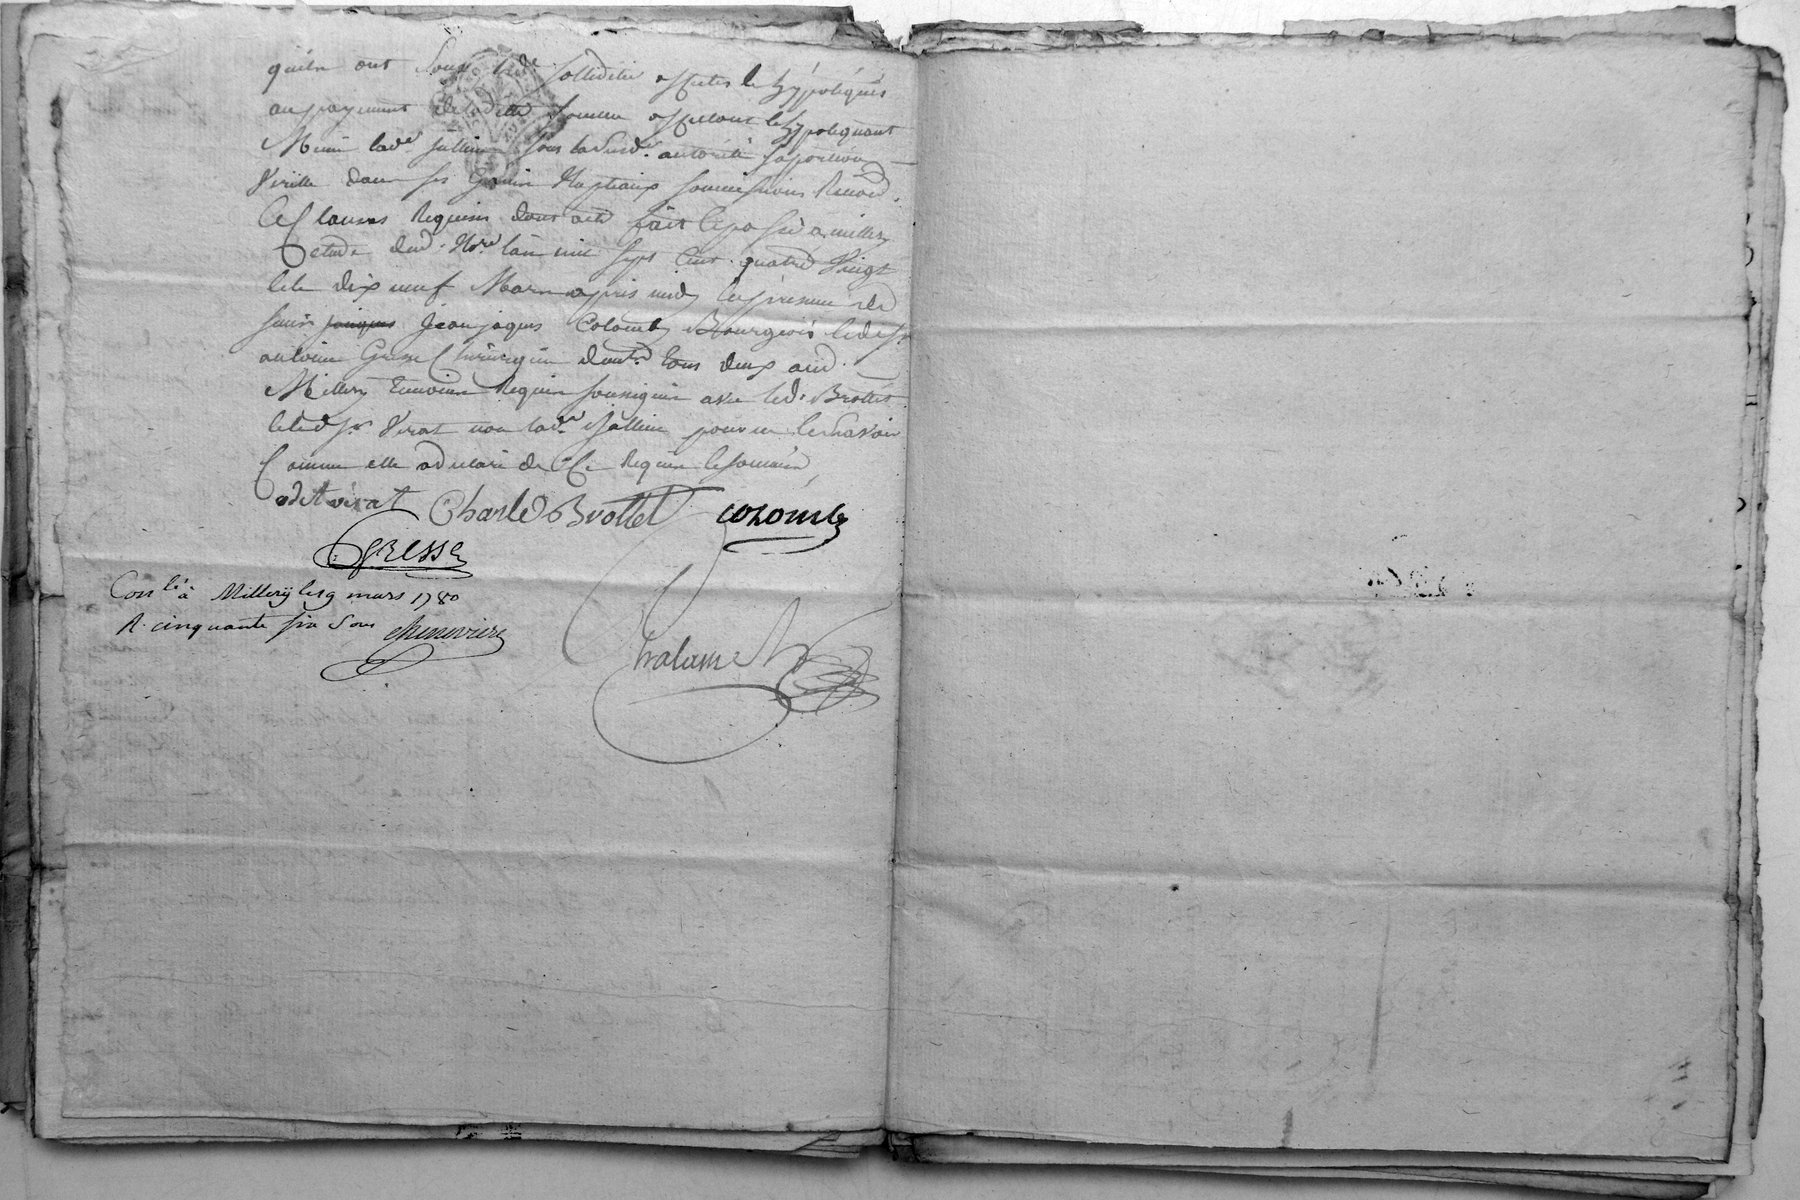 quils ont sous lade solidité affectés & hypotéqués
au payement de ladite somme affectant & hypotéquant
Même lade sous autorité sa portion
Virille dans ses Gains Nuptiaux soumissions Renond.
Clauses Requises dont acte fait & passé a millery
Etude dud. Nore l'an mil sept cent quatre Vingt
& le dix neuf Mars apres midy en presence de
sieur jaques Jean jaques Colomb Bourgeois & de sr
antoine Gresse Chirurgien demt. tous deux aud.
Millery Temoins Requis soussignés avec led. Brottet
& led sr Virat non lade pour ne le savoir
Comme elle a declaré de Ce Requise & sommée
Virat Charle Brottet Colomb
Gresse
Conlé à Millery le 19 mars 1780
R. cinquante six Sous Chenevier